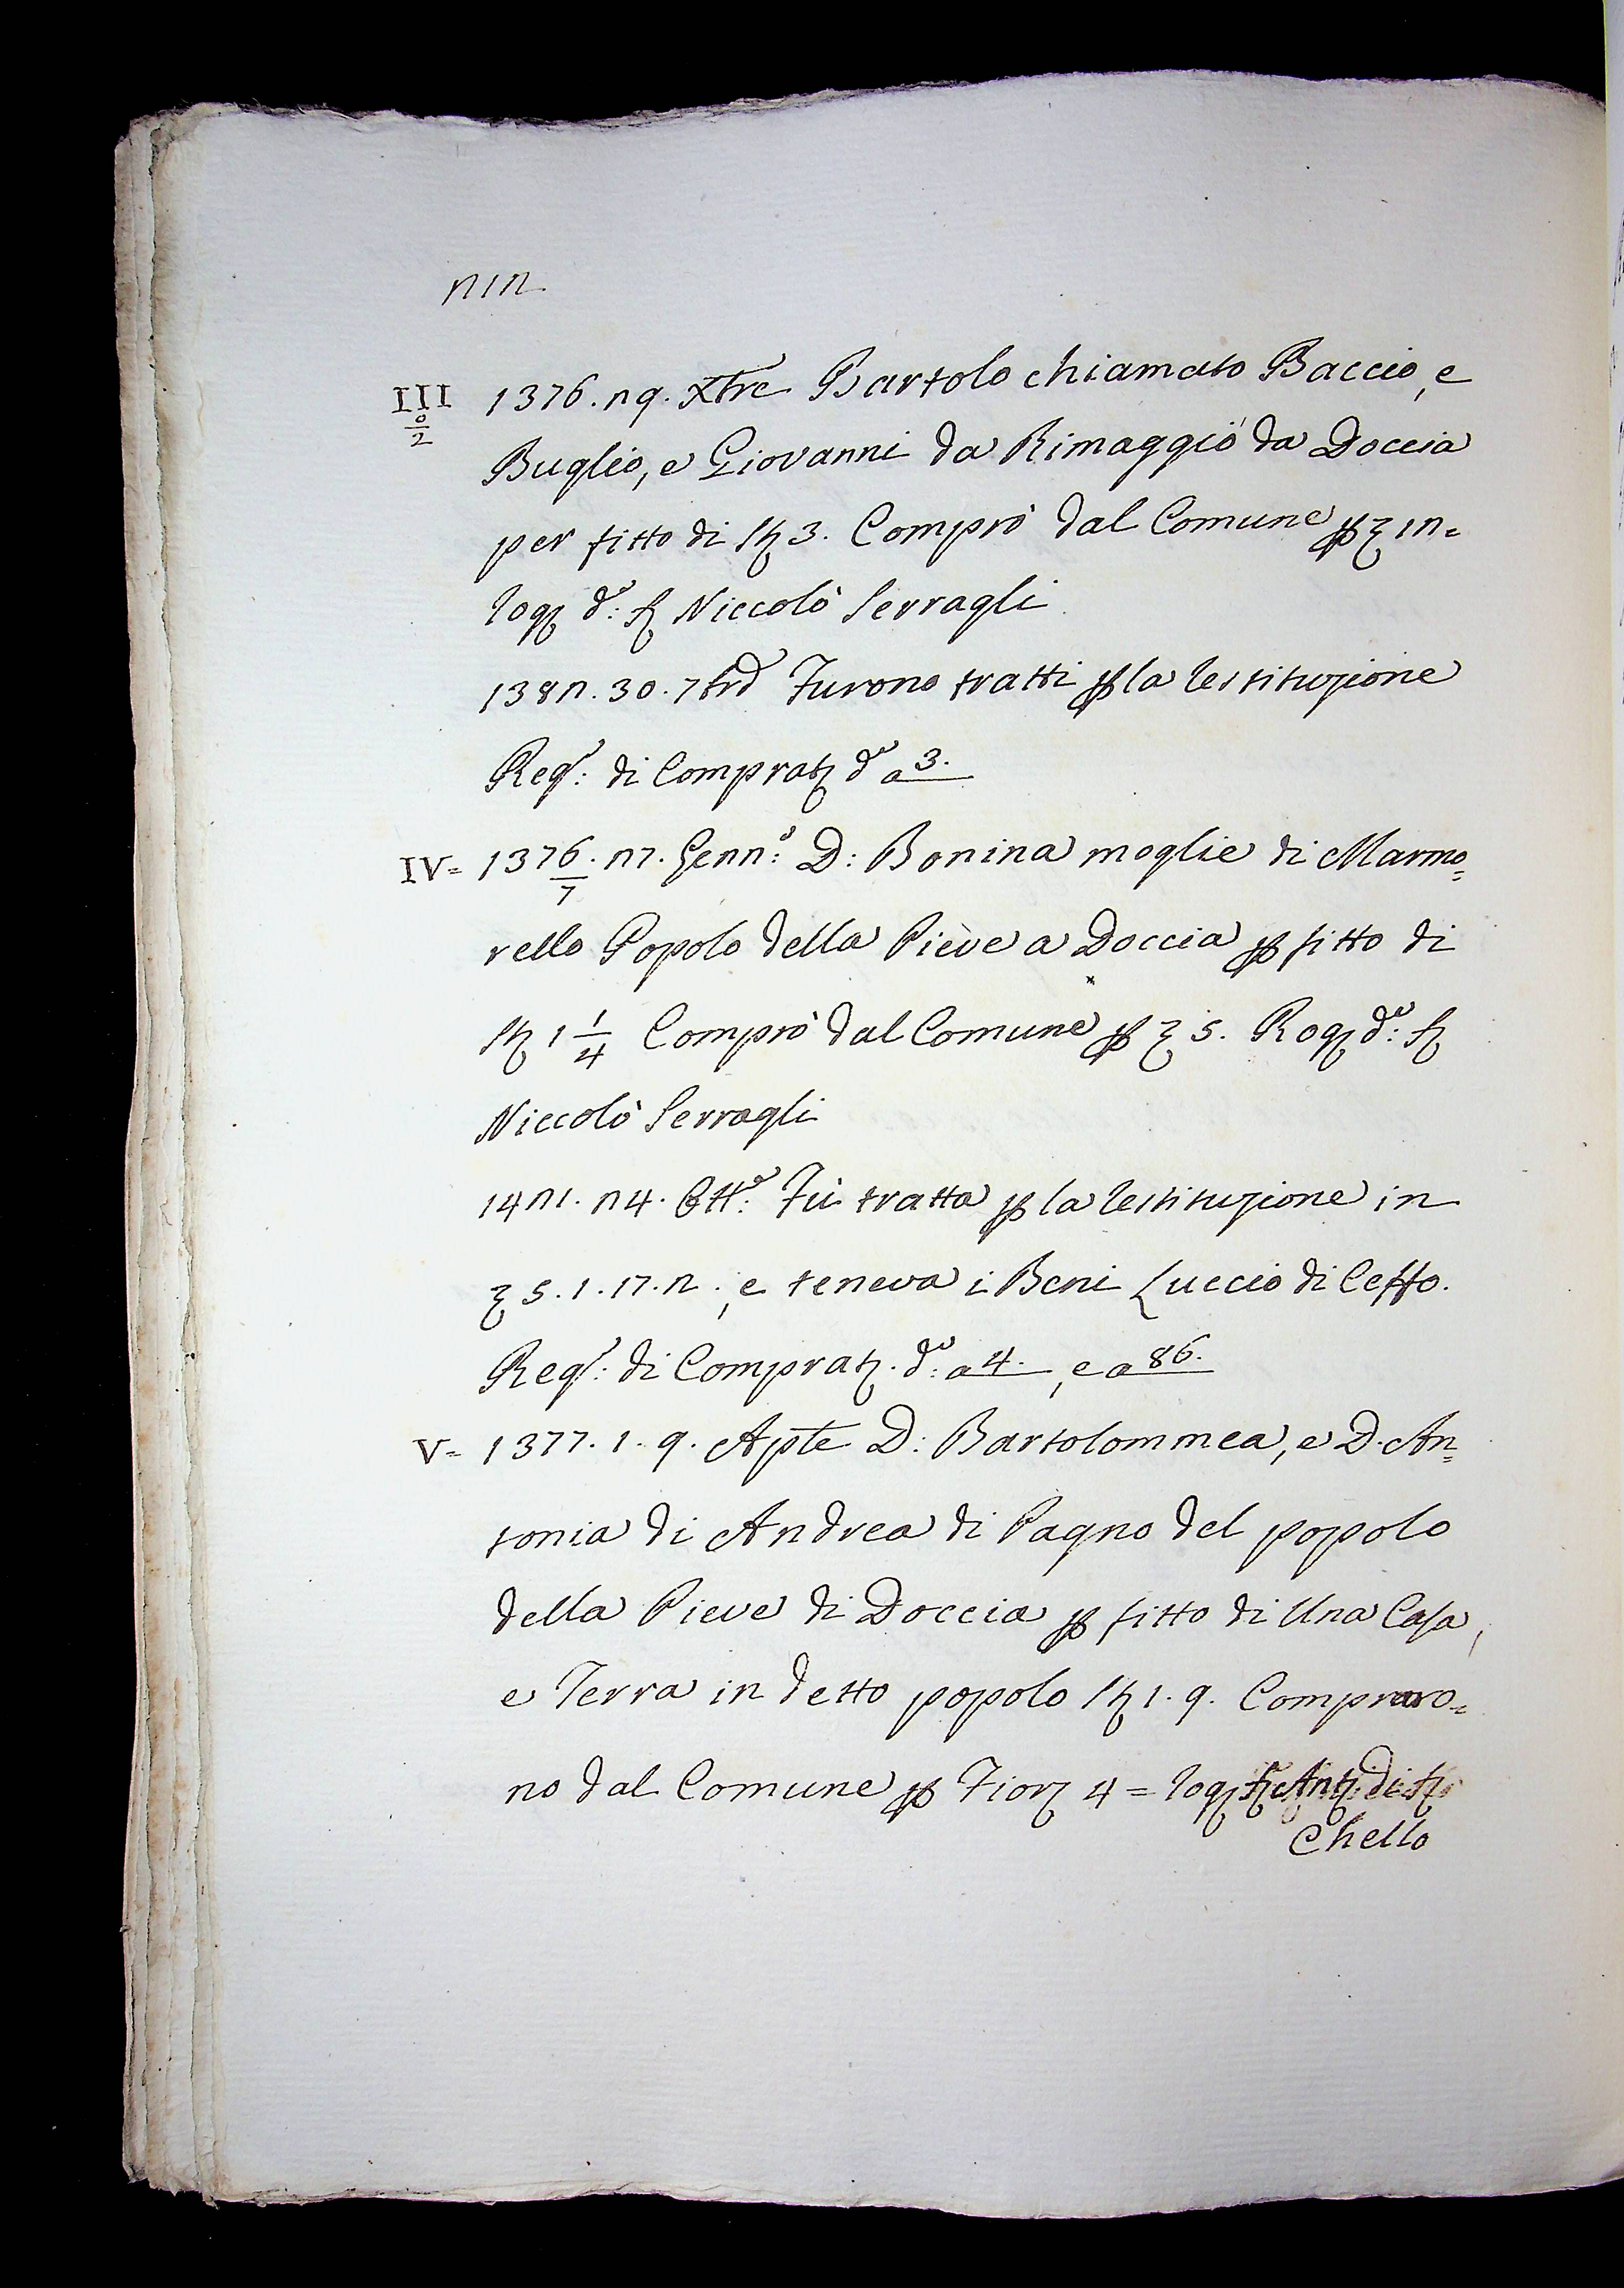 212
III 1376. 29. Xbre Bartolo chiamato Baccio, e
0/2
Buglio, e Giovanni da Rimaggio da Doccia
per fitto di St 3. Comprò dal Comune p £ 12.
Rog dº: S Niccolò Serragli
1382. 30. 7bre Furono tratti p la Restituzione
Regº: di Comprat dº a 3.
IV= 1376/7. 27. Gennº: D: Bonina moglie di Marmo=
rello Popolo della Pieve a Doccia p fitto di
St 1 1/4 Comprò dal Comune p £ 5. Rog dº: S
Niccolò Serragli
1421. 24. Ottº: Fù tratta p la Restituzione in
£ 5. 1. 17. 2., e teneva i Beni Luccio di Ceffo.
Regº: di Comprat. dº: a 4., e a 86.
V= 1377. 1. 9. Aple D: Bartolommea, e D. An=
tonia di Andrea di Pagno del popolo
della Pieve di Doccia p fitto di Una Casa,
e Terra in detto popolo St 1. 9. Compraro=
no dal Comune p Fior 4 = Rog S Ant di S
Chello